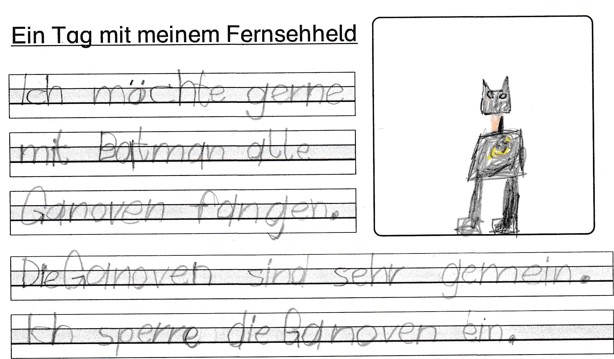 Ein Tag mit meinem Fernsehheld
Ich möchte gerne
mit Batman alle
Ganoven fangen.
Die Ganoven sind sehr gemein.
Ich sperre die Ganoven ein.